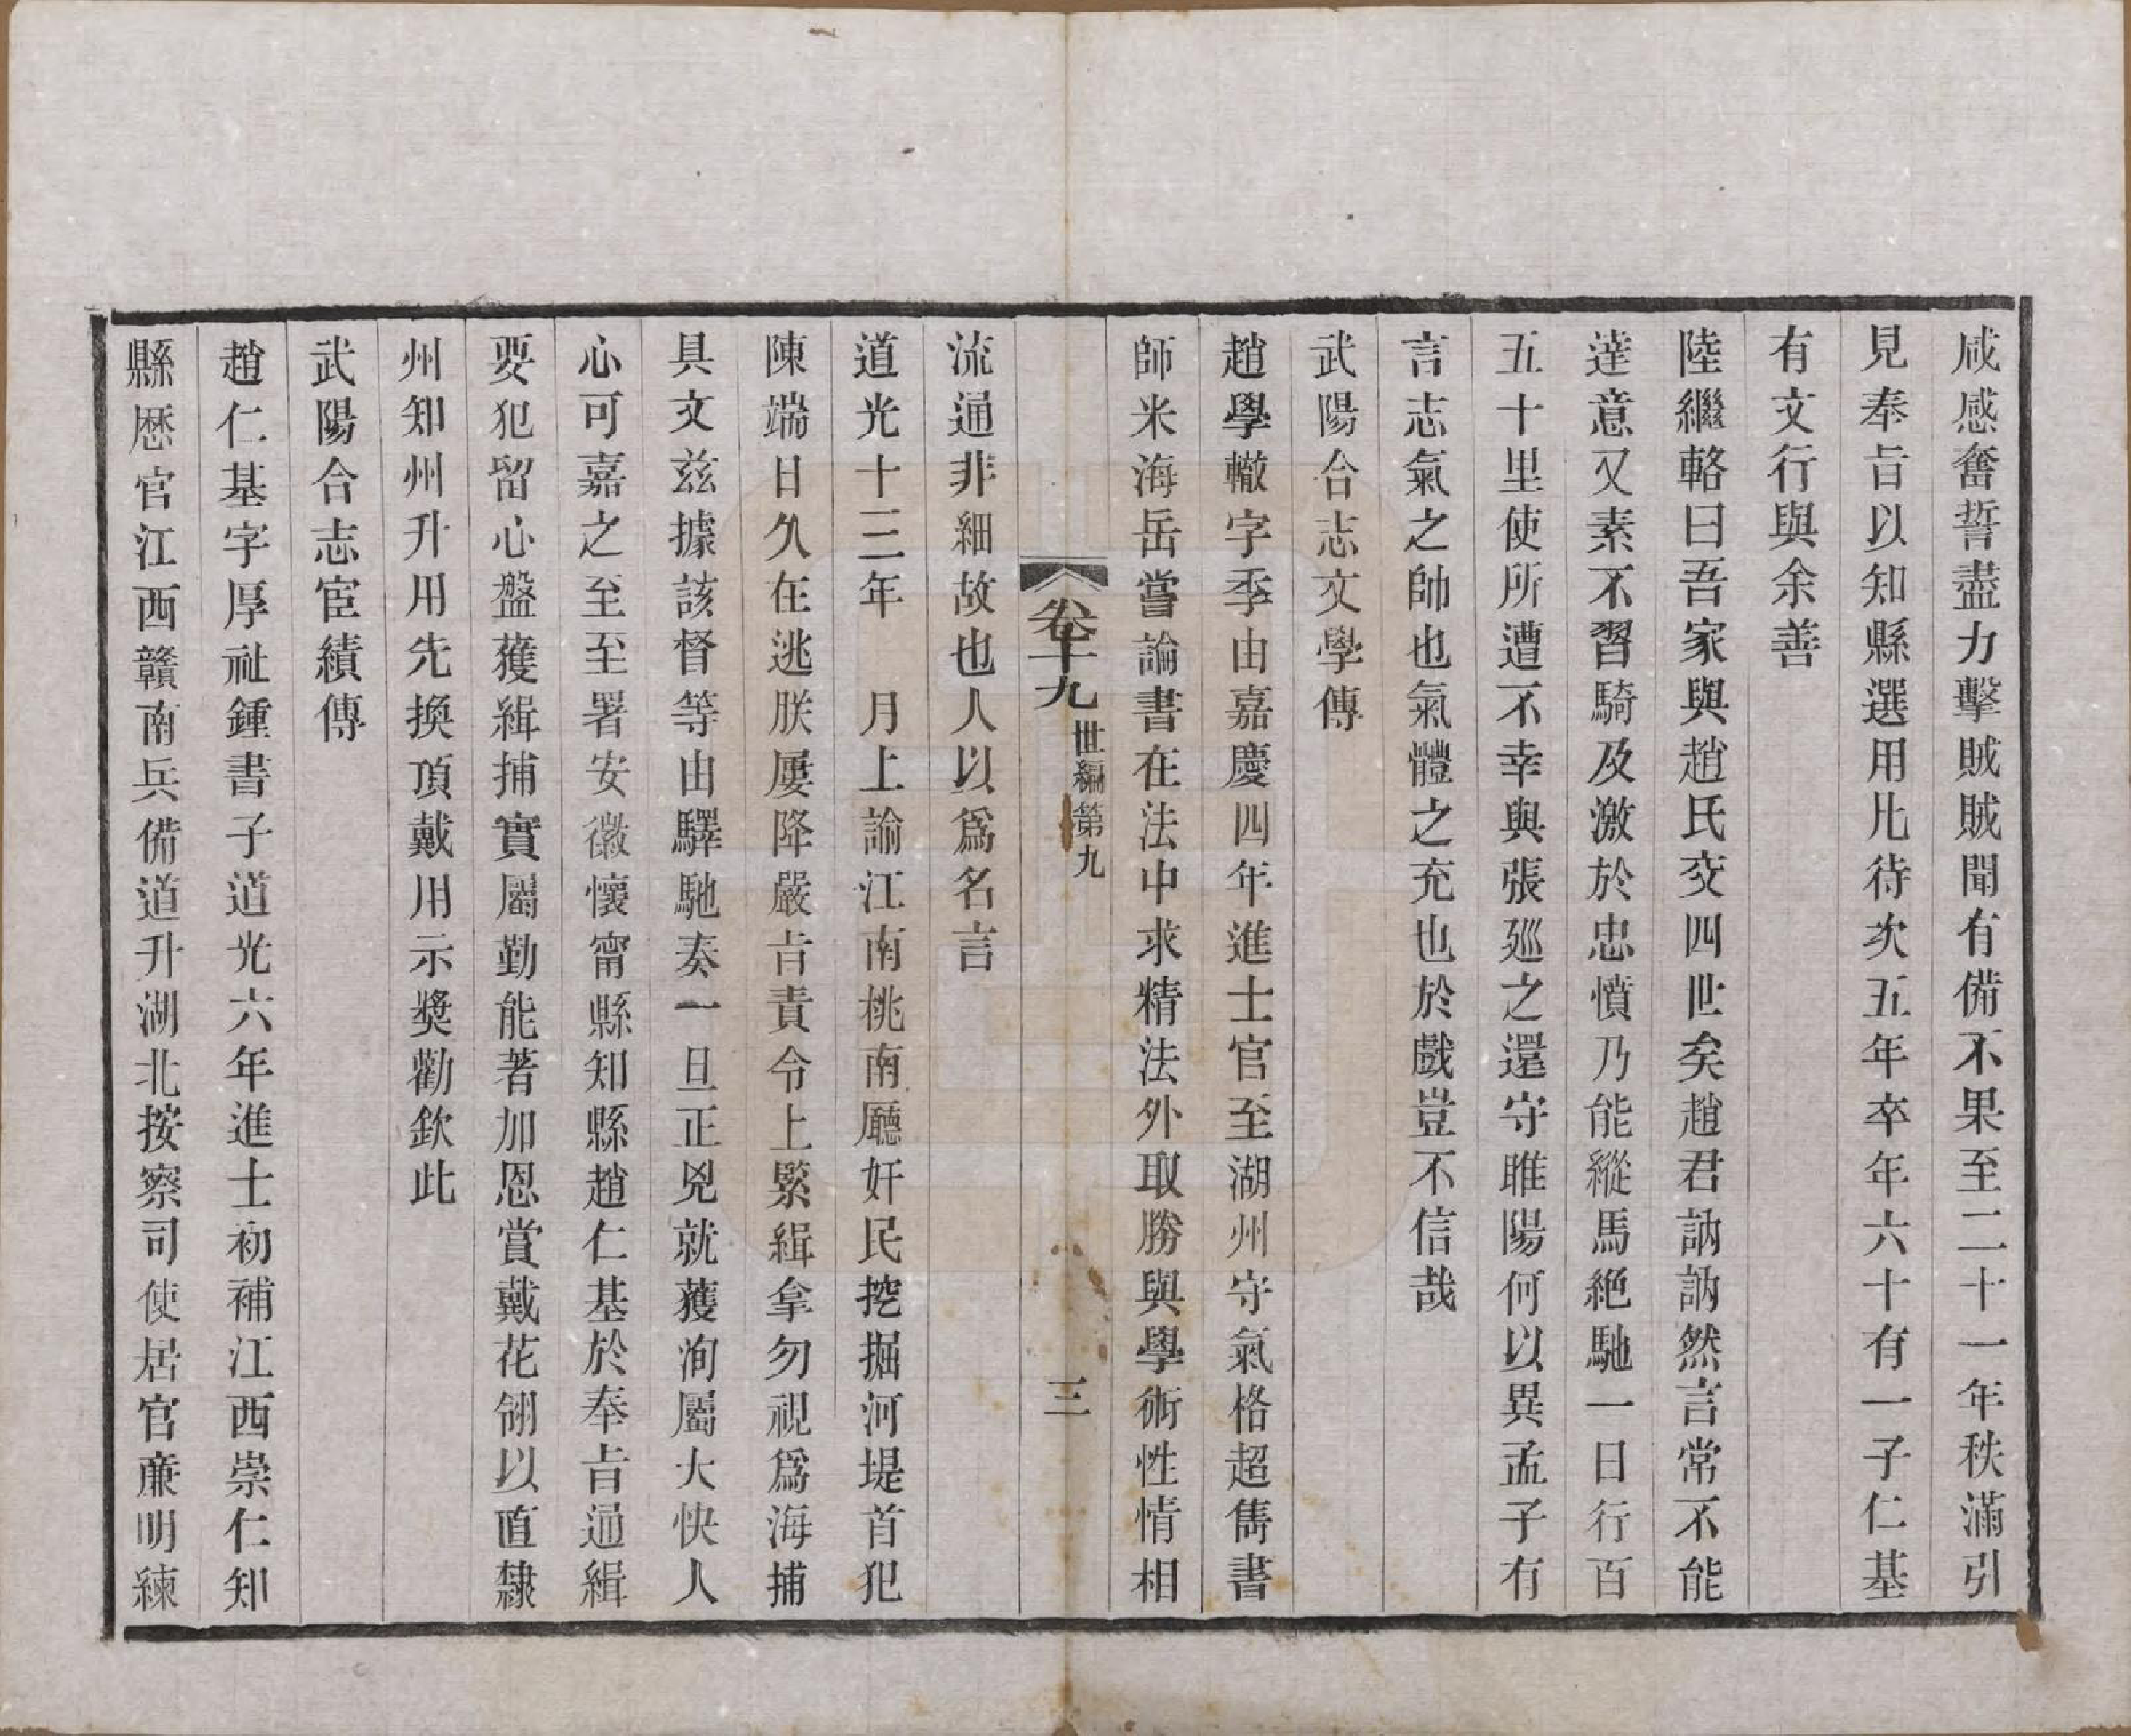 咸感奮誓盡力擊賊賊聞有備不果至二十一年秩滿引
見奉旨以知縣選用比待次五年卒年六十有一子仁基
有文行與余善
陸繼輅曰吾家與趙氏交四世矣趙君訥訥然言常不能
達意又素不習騎及激於忠憤乃能縱馬絕馳一日行百
五十里使所遭不幸與張廵之還守睢陽何以異孟子有
言志氣之帥也氣體之充也於戲豈不信哉
武陽合志文學傳
趙學轍字季由嘉慶四年進士官至湖州守氣格超雋書
師米海岳嘗論書在法中求精法外取勝與學術性情相
卷十九 世編第九 三
流通非細故也人以爲名言
道光十三年 月上諭江南桃南廳奸民挖掘河堤首犯
陳端日久在逃朕屢降嚴旨責令上緊緝拿勿視爲海捕
具文兹據該督等由驛馳奏一旦正兇就獲洵屬大快人
心可嘉之至至署安徽懷甯縣知縣趙仁基於奉旨通緝
要犯留心盤獲緝捕實屬勤能著加恩賞戴花翎以直隸
州知州升用先換頂戴用示獎勸欽此
武陽合志宦績傳
趙仁基字厚祉鍾書子道光六年進士初補江西崇仁知
縣歷官江西贛南兵備道升湖北按察司使居官亷明練